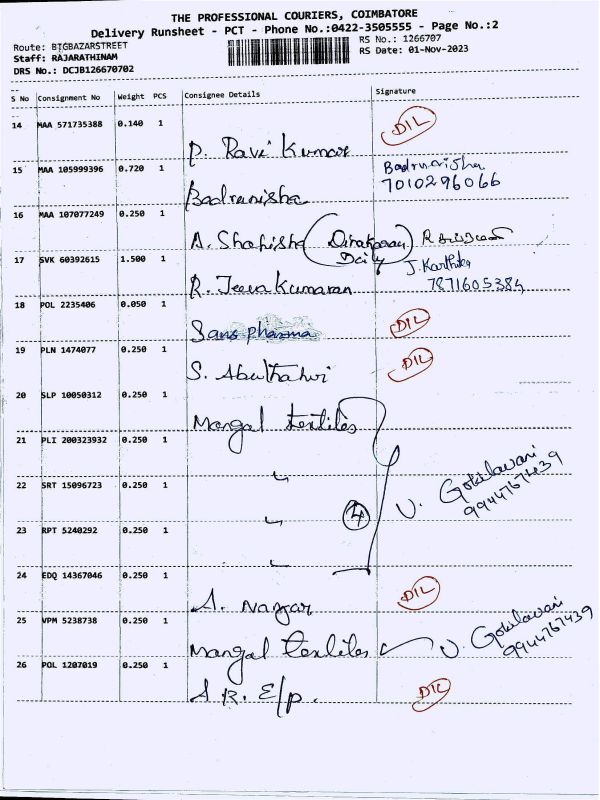 THE PROFESSIONAL COURIERS, COIMBATORE
Delivery Runsheet - PCT - Phone No.:0422-3505555 - Page No.:2
Route: BIGBAZARSTREET
RS No.: 1266707
Staff: RAJARATHINAM
RS Date: 01-Nov-2023
DRS No.: DCJB126670702
S No Consignment No Weight PCS Consignee Details Signature
14 MAA 571735388 0.140 1 DIL
P. Ravi Kumar
15 MAA 105999396 0.720 1 Badrunisha
7010296066
Badrunisha
16 MAA 107077249 0.250 1
A. Shahisha (Dinakaran Daily) R
17 SVK 60392615 1.500 1 J. Karthika
7871605384
R. Jeeva Kumaran
18 POL 2235406 0.050 1 DIL
Sans pharma
19 PLN 1474077 0.250 1 DIL
S. Abuthahir
20 SLP 10050312 0.250 1
Mangal textiles
21 PLI 200323932 0.250 1
22 SRT 15096723 0.250 1 4 V. Gokilavani
9944767439
23 RPT 5240292 0.250 1
24 EDQ 14367046 0.250 1 DIL
A. Nayar
25 VPM 5238738 0.250 1 V. Gokilavani
9944767439
Mangal textiles
26 POL 1207019 0.250 1 DIL
A R. E/p.